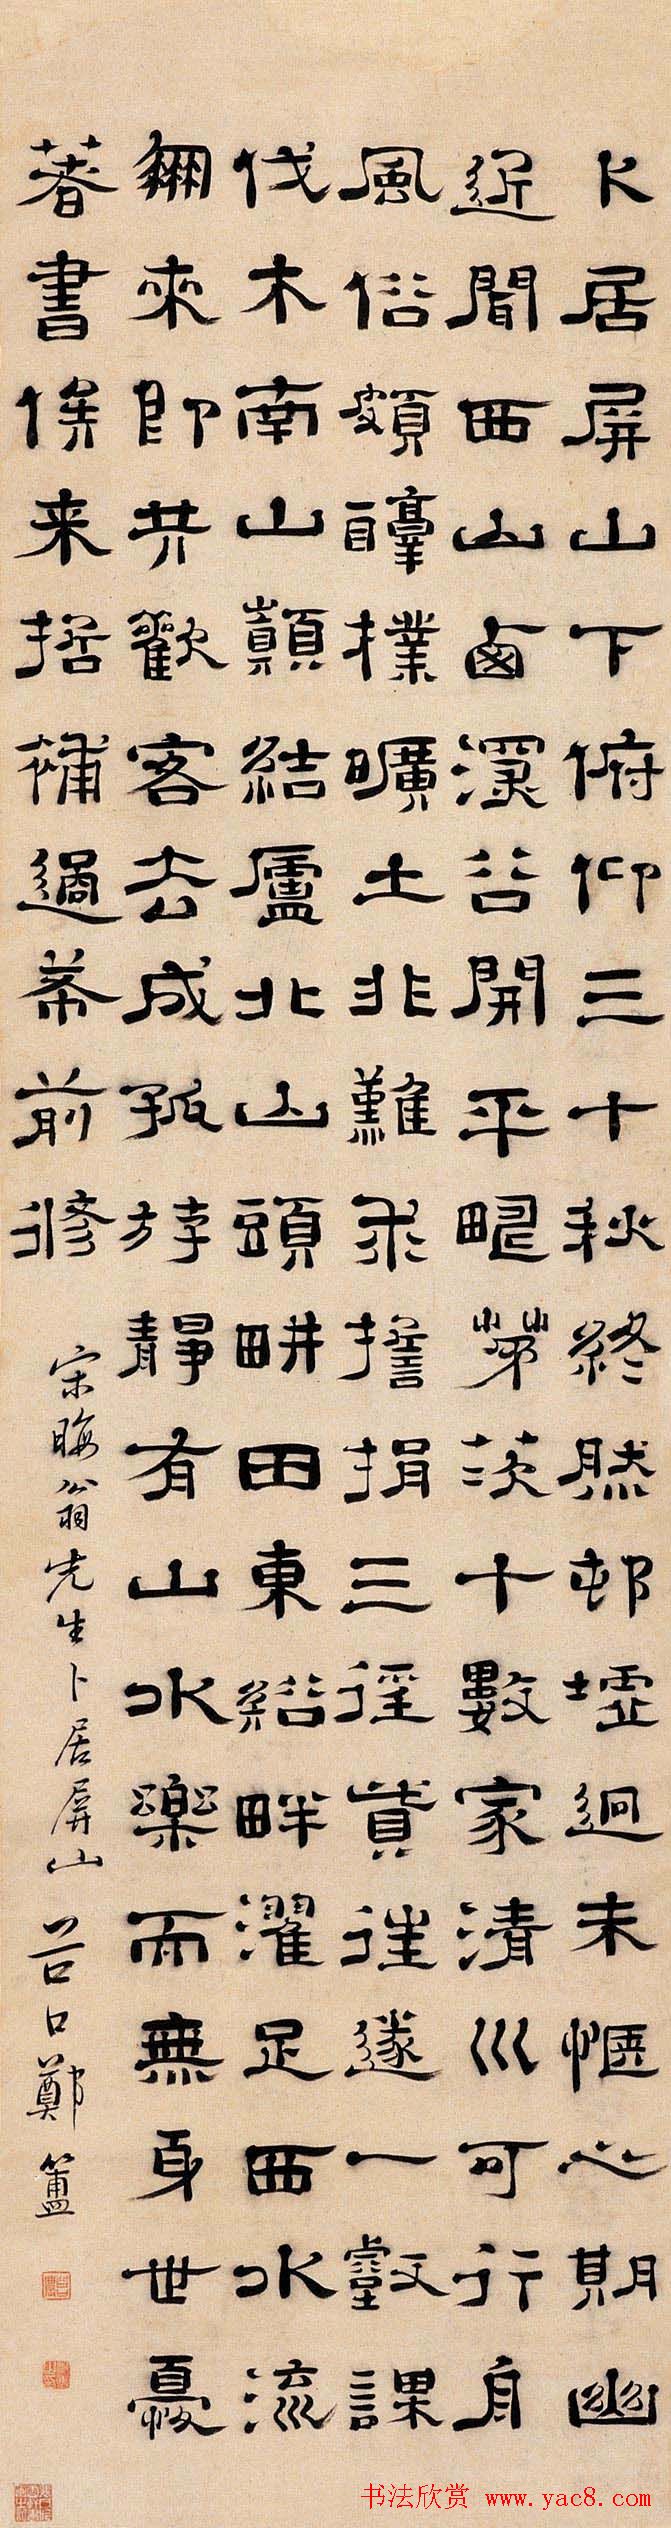 卜居屏山下俯仰三十秋終然邨墟迥未愜心期幽
近聞西山西深谷開平疇茅茨十數家清川可行舟
風俗頗醇樸曠土非難求誓捐三徑貲徃遂一壑謀
伐木南山巔結廬北山頭畊田東谿畔濯足西水流
來即共歡客去成孤斿靜有山水樂而無身世憂
著書俟来哲補過希前修
宋晦翁先生卜居屏山 谷口鄭簠
书法欣赏 www.yac8.com